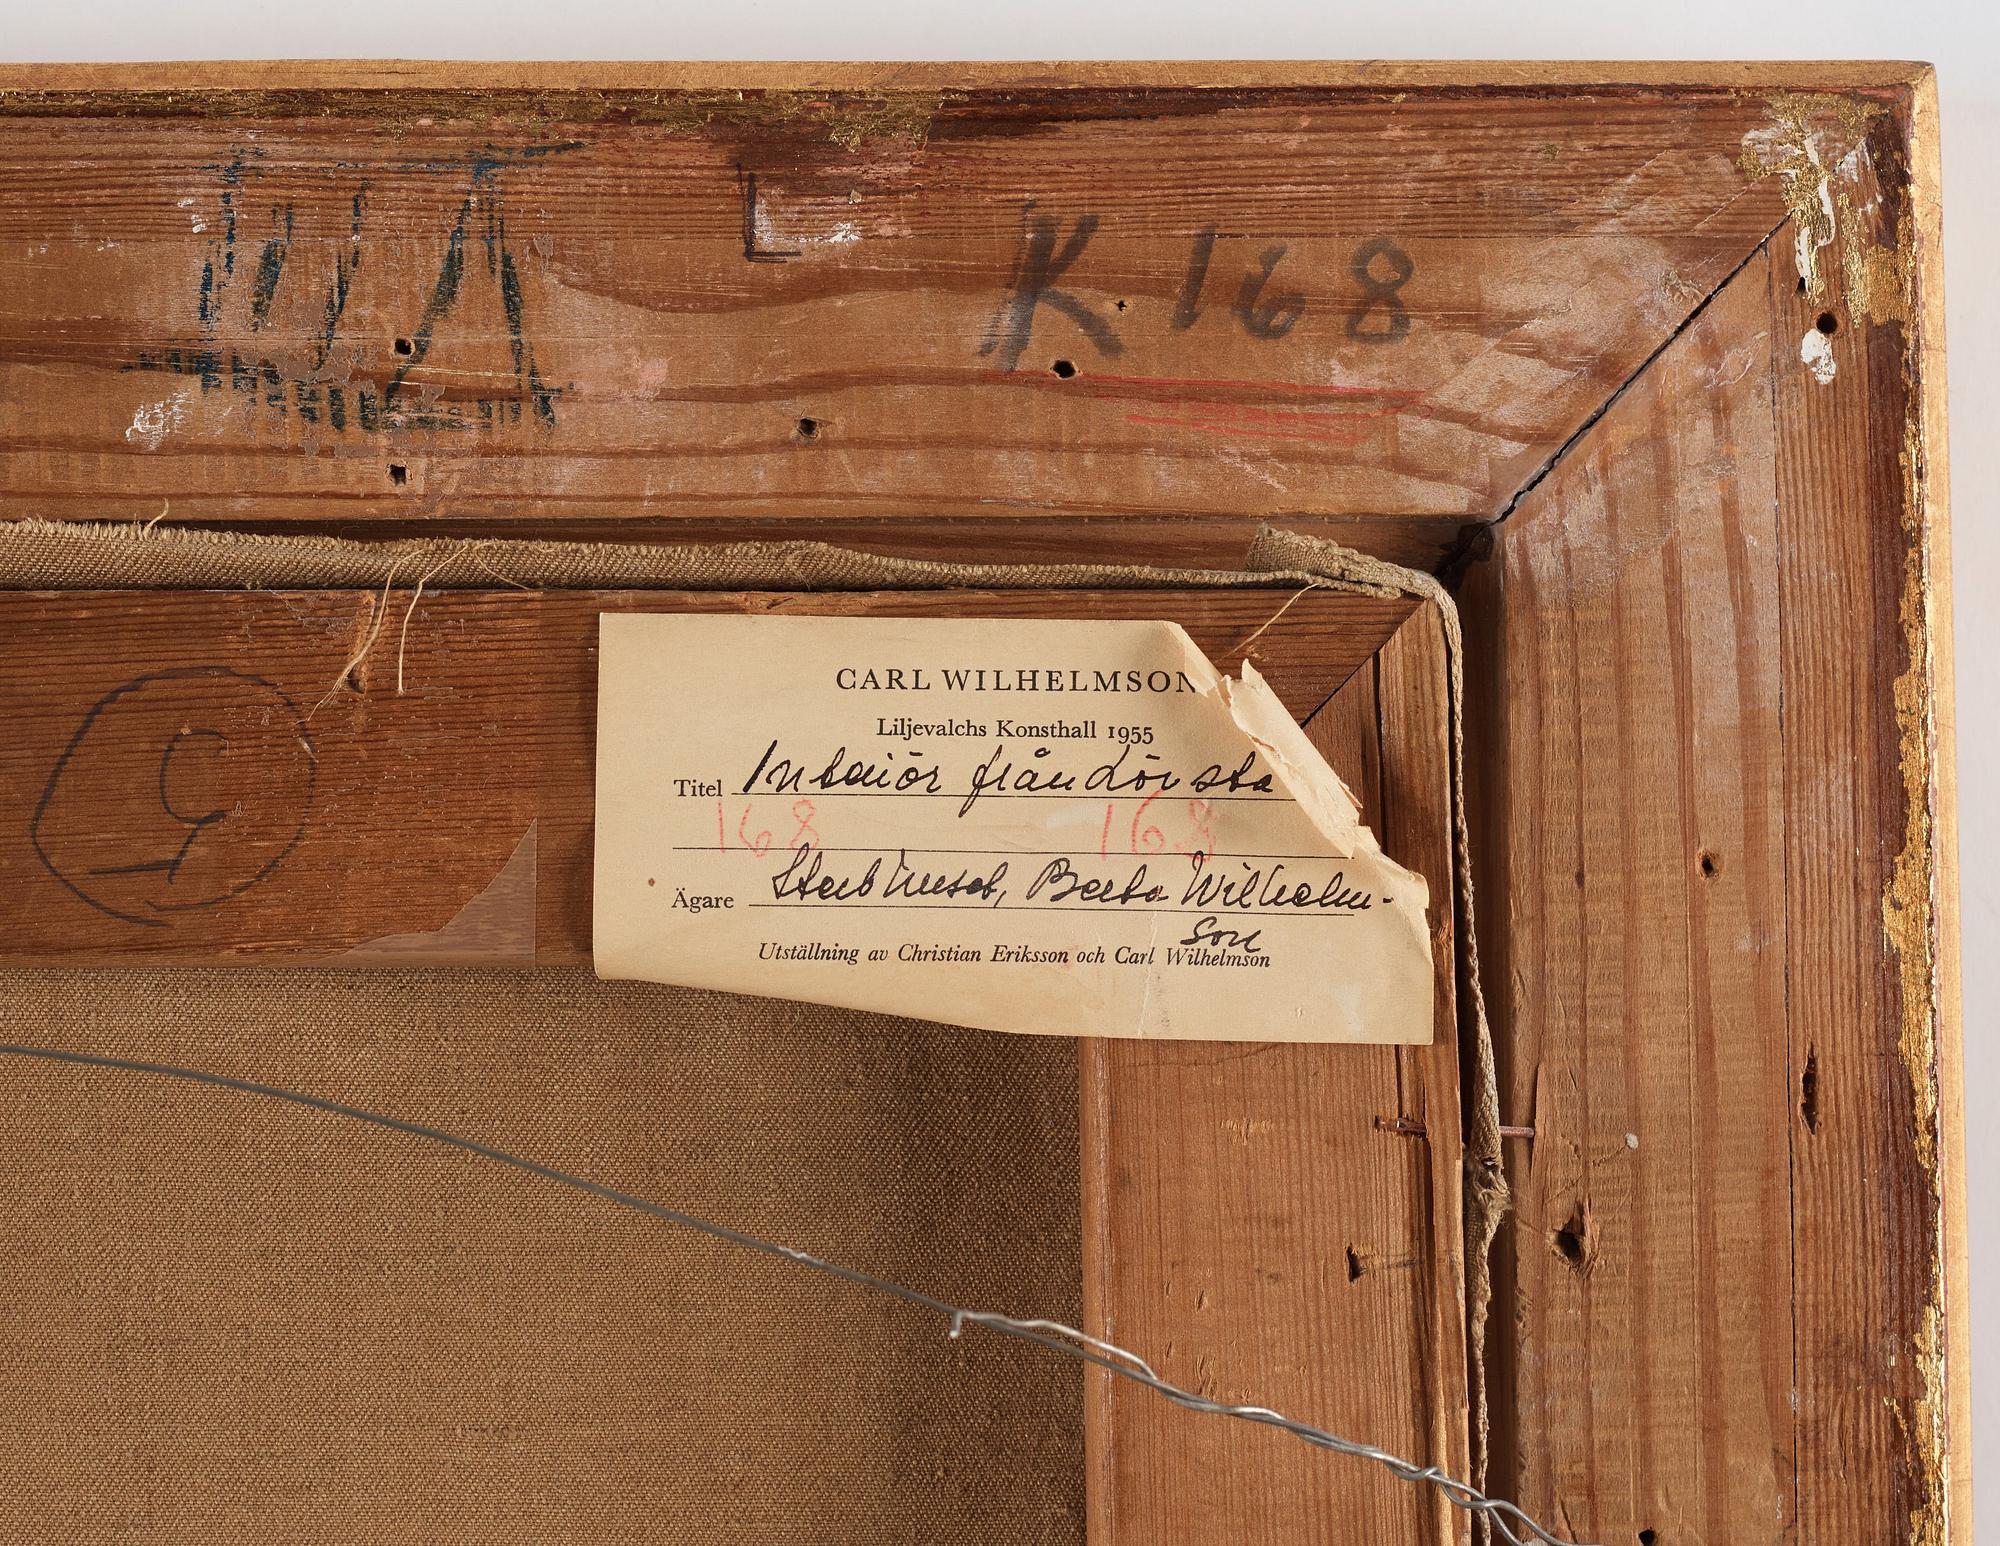 K 168
CARL WILHELMSON
Liljevalchs Konsthall 1955
Titel Interiör från Lövsta
168 168
Ägare Sterbhuset, Berta Wilhelm-
son
Utställning av Christian Eriksson och Carl Wilhelmson